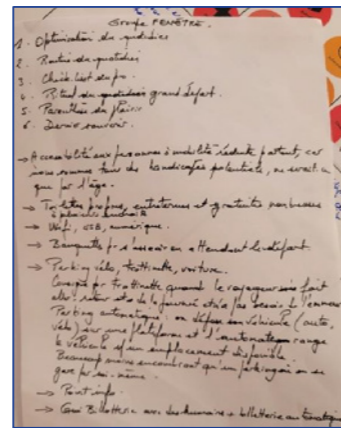 Groupe FENÊTRE.
1. Optimisation du quotidien
2. Routine du quotidien
3. Check list du
4. Rituel du quotidien grand départ.
5. Parenthèse du plaisir
6. Dernier souvenir.
→ Accessibilité aux personnes à mobilité réduite partout, car
nous sommes tous des handicapés potentiels, ne serait-ce
que par l'âge.
→ Toilettes propres, entretenues et gratuites nombreuses
à plusieurs endroits
→ Wifi, USB, numérique.
→ Banquette pr s'asseoir en attendant le départ
→ Parking vélo, trottinette, voiture.
trottinette quand le voyageur fait
aller retour de la journée et n'a pas besoin de l'emmener
Parking automatique : on dépose son véhicule (auto,
vélo) sur une plateforme et l'automate range
le véhicule à un emplacement disponible.
Beaucoup moins encombrant qu'un parking où on se
gare par soi-même.
→ Point info
→ Coin Billetterie avec des humains + billetterie automatique